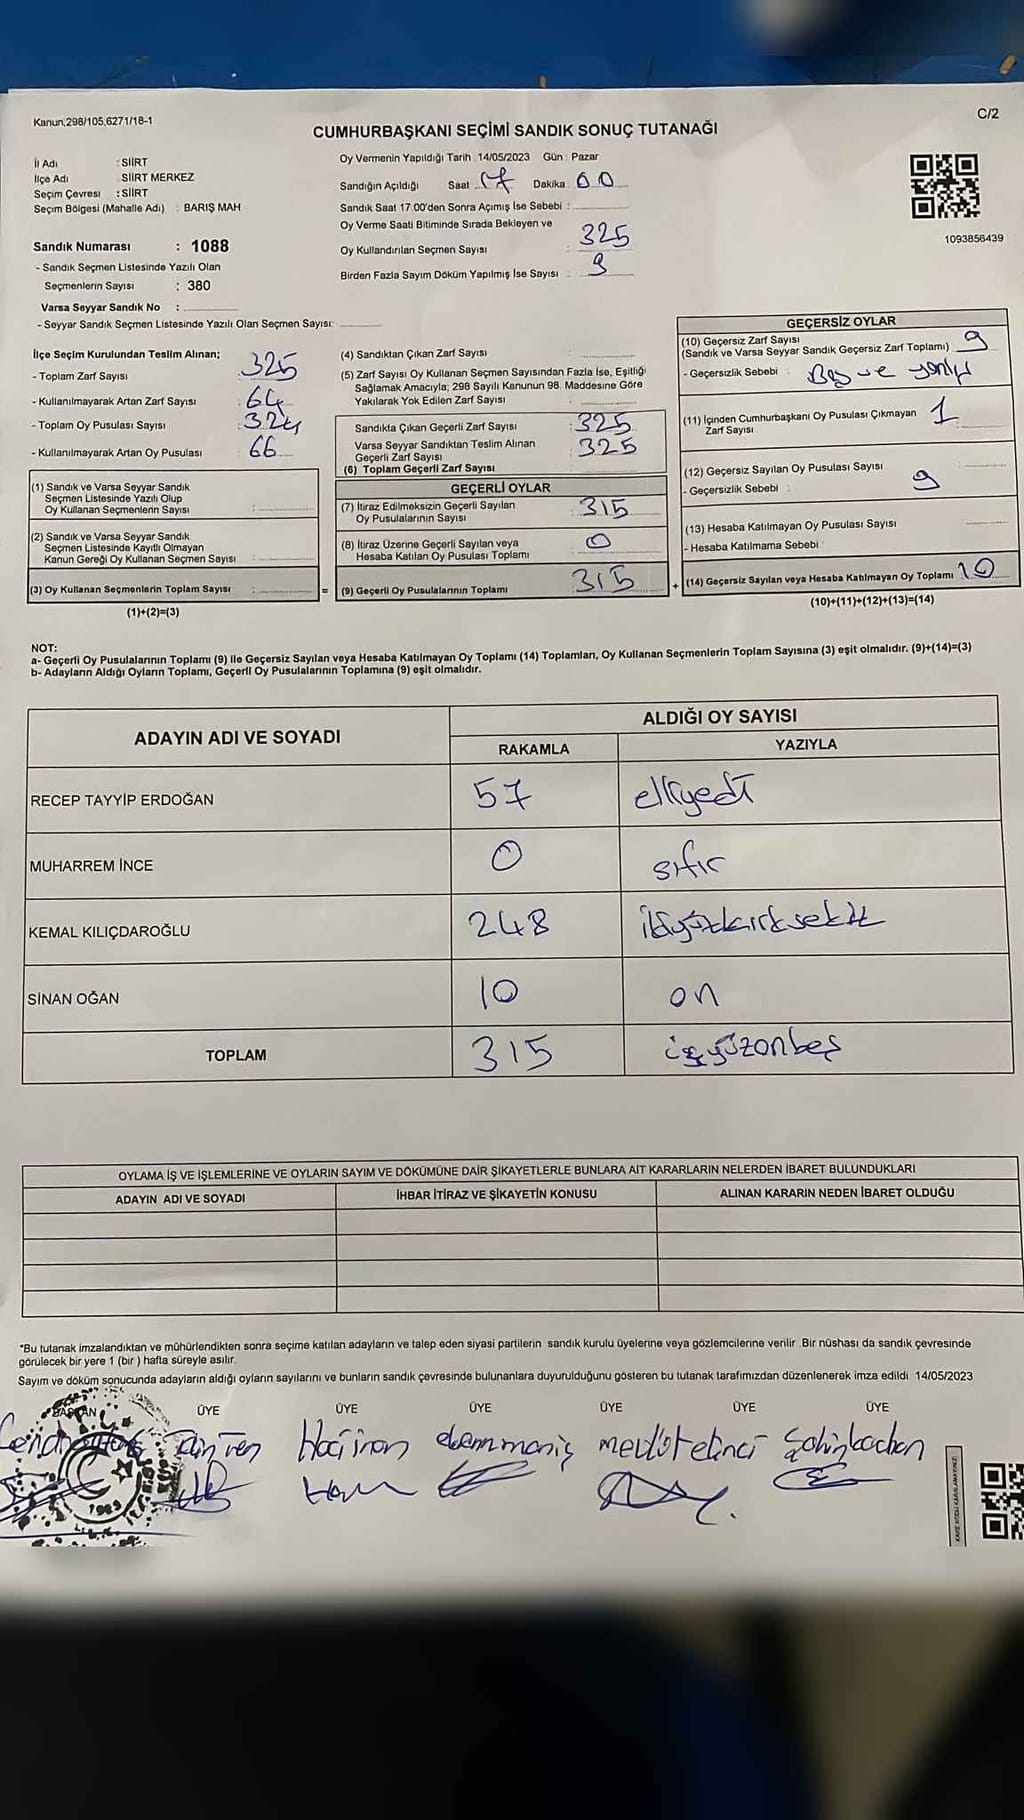 Kanun;298/105,6271/18-1
C/2
CUMHURBAŞKANI SEÇİMİ SANDIK SONUÇ TUTANAĞI
İl Adı : SİİRT
İlçe Adı SİİRT MERKEZ
Seçim Çevresi : SİİRT
Seçim Bölgesi (Mahalle Adı) : BARIŞ MAH
Oy Vermenin Yapıldığı Tarih :14/05/2023 Gün : Pazar
Sandığın Açıldığı Saat 17 Dakika 00
Sandık Saat 17.00'den Sonra Açımış İse Sebebi :
Oy Verme Saati Bitiminde Sırada Bekleyen ve
Oy Kullandırılan Seçmen Sayısı : 325
Birden Fazla Sayım Döküm Yapılmış İse Sayısı : 9
1093856439
Sandık Numarası : 1088
- Sandık Seçmen Listesinde Yazılı Olan
Seçmenlerin Sayısı : 380
Varsa Seyyar Sandık No :
- Seyyar Sandık Seçmen Listesinde Yazılı Olan Seçmen Sayısı:
İlçe Seçim Kurulundan Teslim Alınan;
- Toplam Zarf Sayısı 325
- Kullanılmayarak Artan Zarf Sayısı : 64
- Toplam Oy Pusulası Sayısı : 324
- Kullanılmayarak Artan Oy Pusulası 66
(1) Sandık ve Varsa Seyyar Sandık
Seçmen Listesinde Yazılı Olup
Oy Kullanan Seçmenlerin Sayısı :
(2) Sandık ve Varsa Seyyar Sandık
Seçmen Listesinde Kayıtlı Olmayan
Kanun Gereği Oy Kullanan Seçmen Sayısı :
(3) Oy Kullanan Seçmenlerin Toplam Sayısı : =
(1)+(2)=(3)
(4) Sandıktan Çıkan Zarf Sayısı :
(5) Zarf Sayısı Oy Kullanan Seçmen Sayısından Fazla İse, Eşitliği
Sağlamak Amacıyla; 298 Sayılı Kanunun 98. Maddesine Göre
Yakılarak Yok Edilen Zarf Sayısı :
Sandıkta Çıkan Geçerli Zarf Sayısı : 325
Varsa Seyyar Sandıktan Teslim Alınan
Geçerli Zarf Sayısı : 325
(6) Toplam Geçerli Zarf Sayısı
GEÇERLİ OYLAR
(7) İtiraz Edilmeksizin Geçerli Sayılan
Oy Pusulalarının Sayısı : 315
(8) İtiraz Üzerine Geçerli Sayılan veya
Hesaba Katılan Oy Pusulası Toplamı : 0
(9) Geçerli Oy Pusulalarının Toplamı 315 +
GEÇERSİZ OYLAR
(10) Geçersiz Zarf Sayısı
(Sandık ve Varsa Seyyar Sandık Geçersiz Zarf Toplamı) 9
- Geçersizlik Sebebi : Boş ve
(11) İçinden Cumhurbaşkanı Oy Pusulası Çıkmayan
Zarf Sayısı : 1
(12) Geçersiz Sayılan Oy Pusulası Sayısı
- Geçersizlik Sebebi : 9
(13) Hesaba Katılmayan Oy Pusulası Sayısı
- Hesaba Katılmama Sebebi :
(14) Geçersiz Sayılan veya Hesaba Katılmayan Oy Toplamı 10
(10)+(11)+(12)+(13)=(14)
NOT:
a- Geçerli Oy Pusulalarının Toplamı (9) ile Geçersiz Sayılan veya Hesaba Katılmayan Oy Toplamı (14) Toplamları, Oy Kullanan Seçmenlerin Toplam Sayısına (3) eşit olmalıdır. (9)+(14)=(3)
b- Adayların Aldığı Oyların Toplamı, Geçerli Oy Pusulalarının Toplamına (9) eşit olmalıdır.
ADAYIN ADI VE SOYADI ALDIĞI OY SAYISI
RAKAMLA YAZIYLA
RECEP TAYYİP ERDOĞAN 57 elliyedi
MUHARREM İNCE 0 sıfır
KEMAL KILIÇDAROĞLU 248 ikiyüzkırksekiz
SİNAN OĞAN 10 on
TOPLAM 315 üçyüzonbeş
OYLAMA İŞ VE İŞLEMLERİNE VE OYLARIN SAYIM VE DÖKÜMÜNE DAİR ŞİKAYETLERLE BUNLARA AİT KARARLARIN NELERDEN İBARET BULUNDUKLARI
ADAYIN ADI VE SOYADI İHBAR İTİRAZ VE ŞİKAYETİN KONUSU ALINAN KARARIN NEDEN İBARET OLDUĞU
*Bu tutanak imzalandıktan ve mühürlendikten sonra seçime katılan adayların ve talep eden siyasi partilerin sandık kurulu üyelerine veya gözlemcilerine verilir. Bir nüshası da sandık çevresinde
görülecek bir yere 1 (bir) hafta süreyle asılır.
Sayım ve döküm sonucunda adayların aldığı oyların sayılarını ve bunların sandık çevresinde bulunanlara duyurulduğunu gösteren bu tutanak tarafımızdan düzenlenerek imza edildi 14/05/2023
BAŞKAN ÜYE ÜYE ÜYE ÜYE ÜYE ÜYE
Haci inan